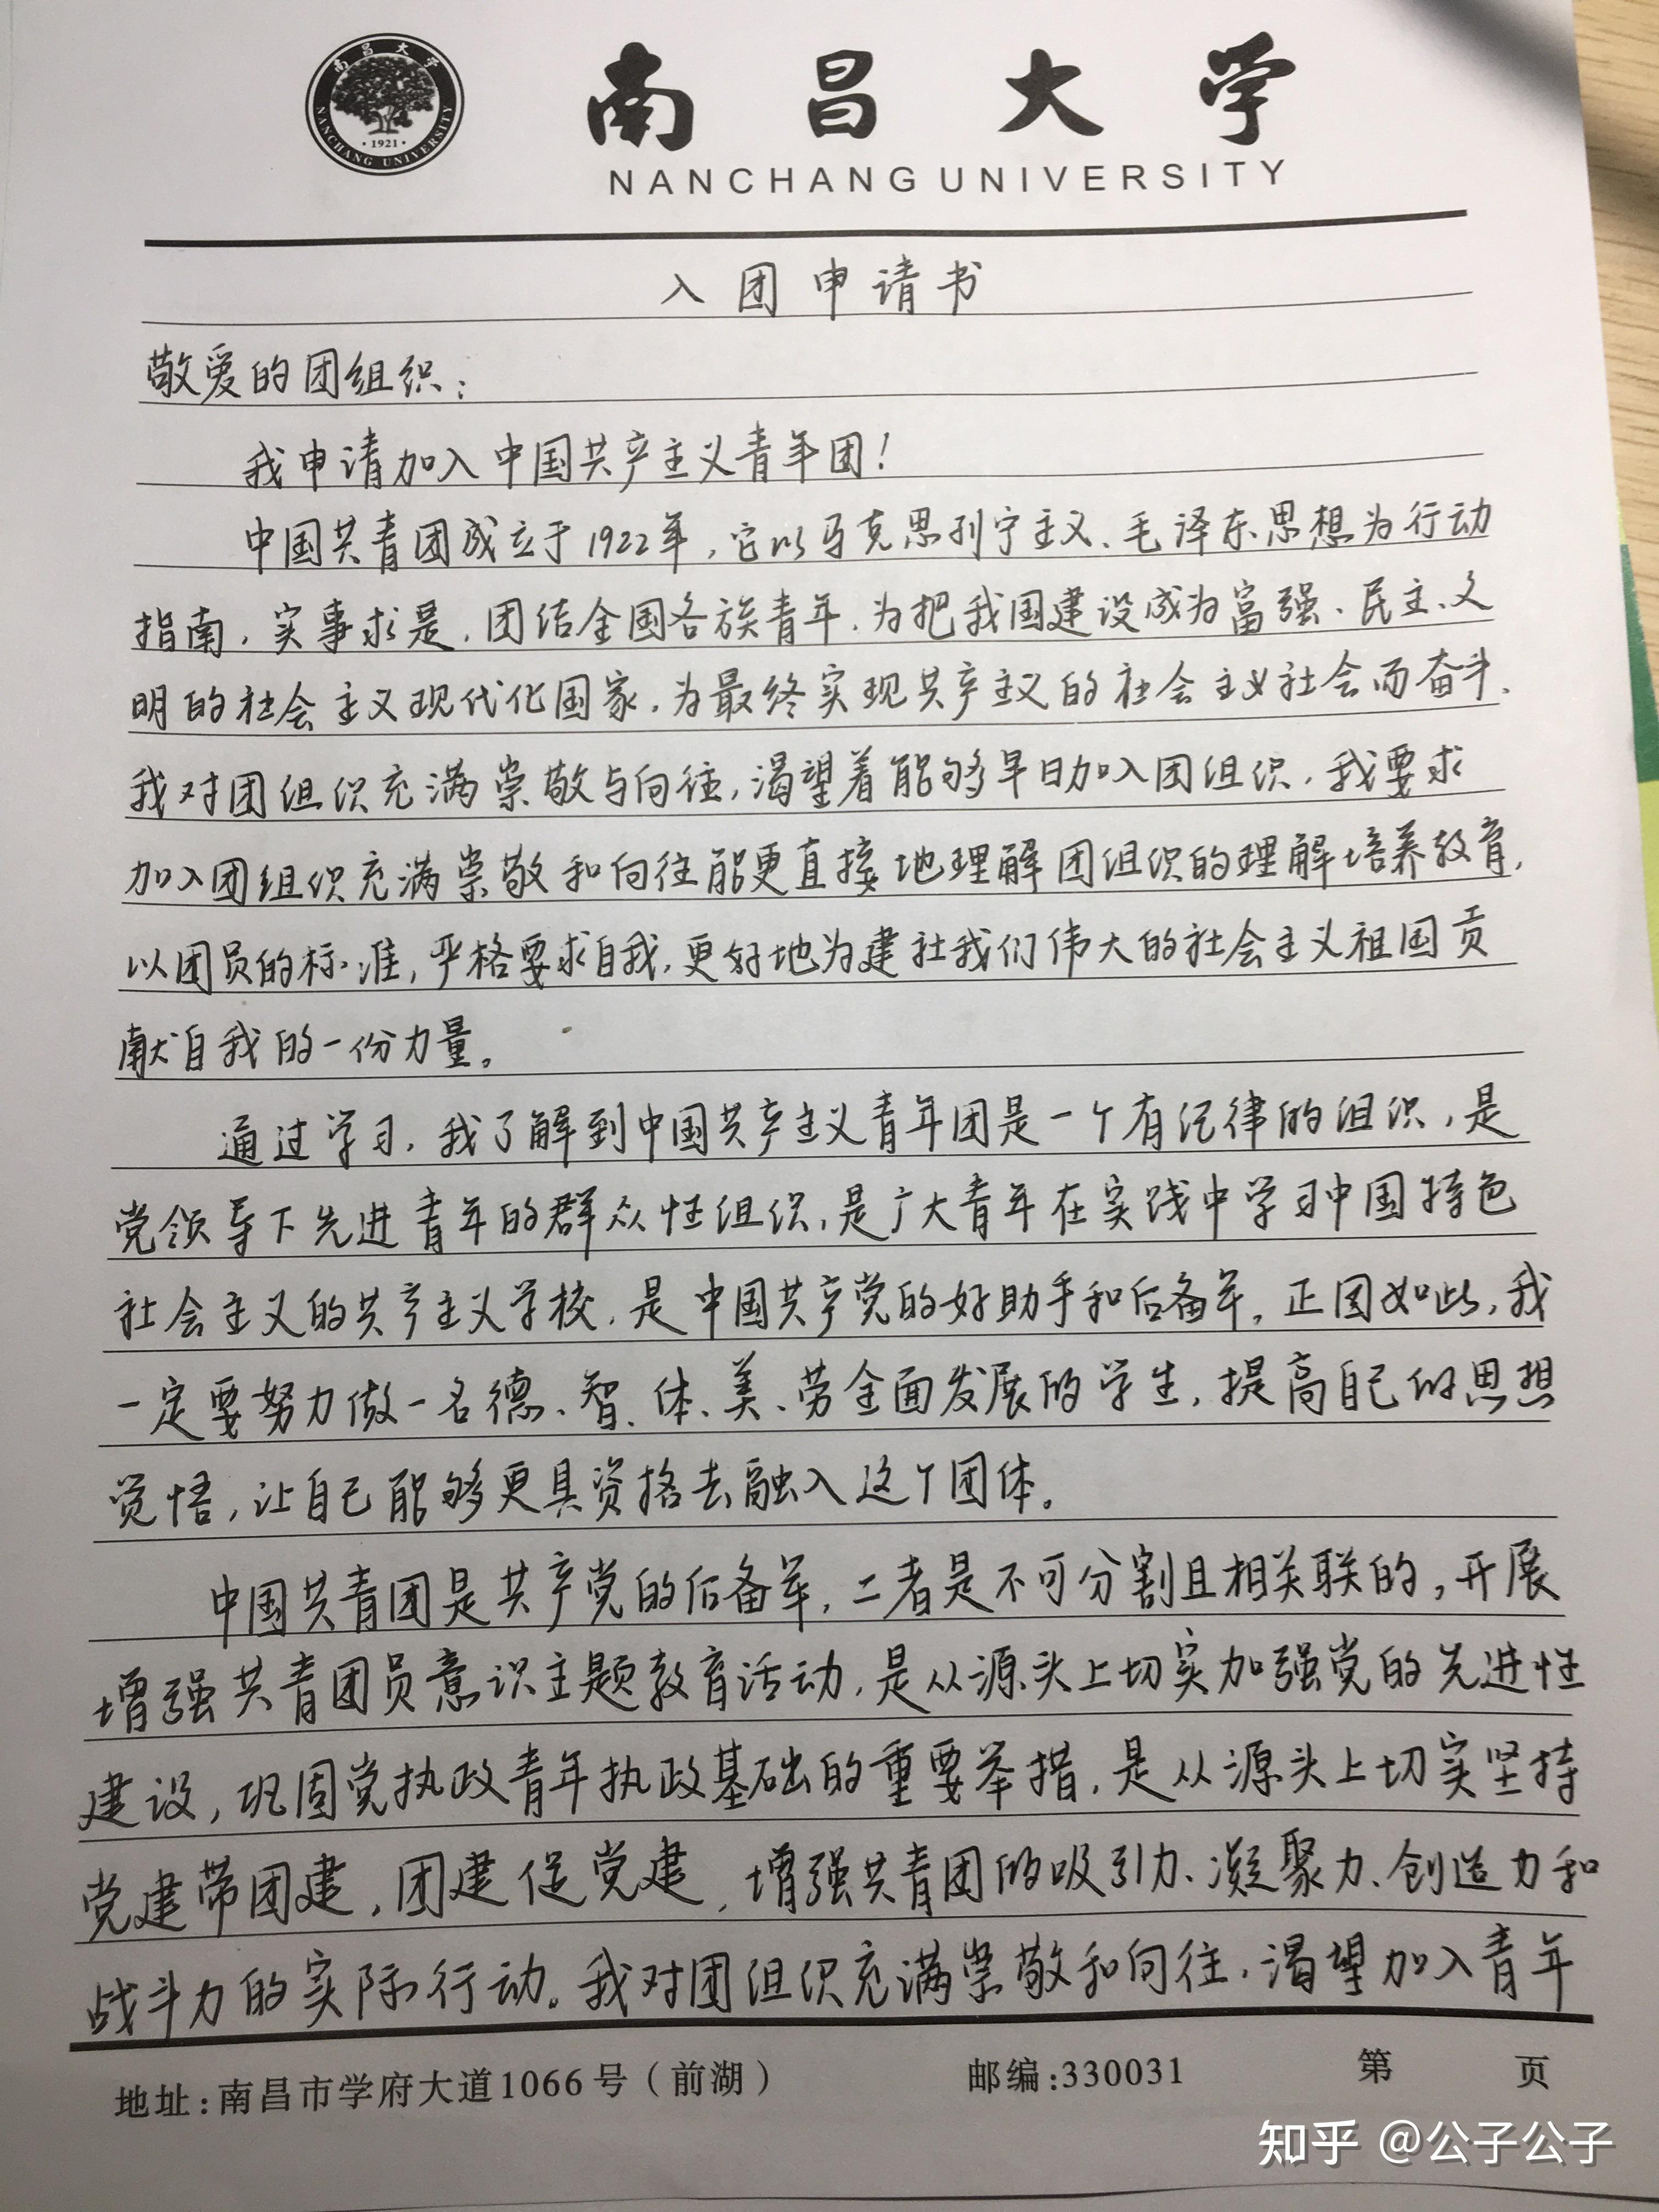 南昌大学
NANCHANG UNIVERSITY
·1921·
南昌大学
NANCHANG UNIVERSITY
入团申请书
敬爱的团组织：
我申请加入中国共产主义青年团！
中国共青团成立于1922年，它以马克思列宁主义、毛泽东思想为行动
指南，实事求是，团结全国各族青年，为把我国建设成为富强、民主、文
明的社会主义现代化国家，为最终实现共产主义的社会主义社会而奋斗，
我对团组织充满崇敬与向往，渴望着能够早日加入团组织，我要求
加入团组织充满崇敬和向往能更直接地理解团组织的理解培养教育，
以团员的标准，严格要求自我，更好地为建社我们伟大的社会主义祖国贡
献自我的一份力量。
通过学习，我了解到中国共产主义青年团是一个有纪律的组织，是
党领导下先进青年的群众性组织，是广大青年在实践中学习中国特色
社会主义的共产主义学校，是中国共产党的好助手和后备军，正因如此，我
一定要努力做一名德、智、体、美、劳全面发展的学生，提高自己的思想
觉悟，让自己能够更具资格去融入这个团体。
中国共青团是共产党的后备军，二者是不可分割且相关联的，开展
增强共青团员意识主题教育活动，是从源头上切实加强党的先进性
建设，巩固党执政青年执政基础的重要举措，是从源头上切实坚持
党建带团建，团建促党建，增强共青团的吸引力、凝聚力、创造力和
战斗力的实际行动。我对团组织充满崇敬和向往，渴望加入青年
地址：南昌市学府大道1066号（前湖） 邮编：330031 第 页
知乎 @公子公子